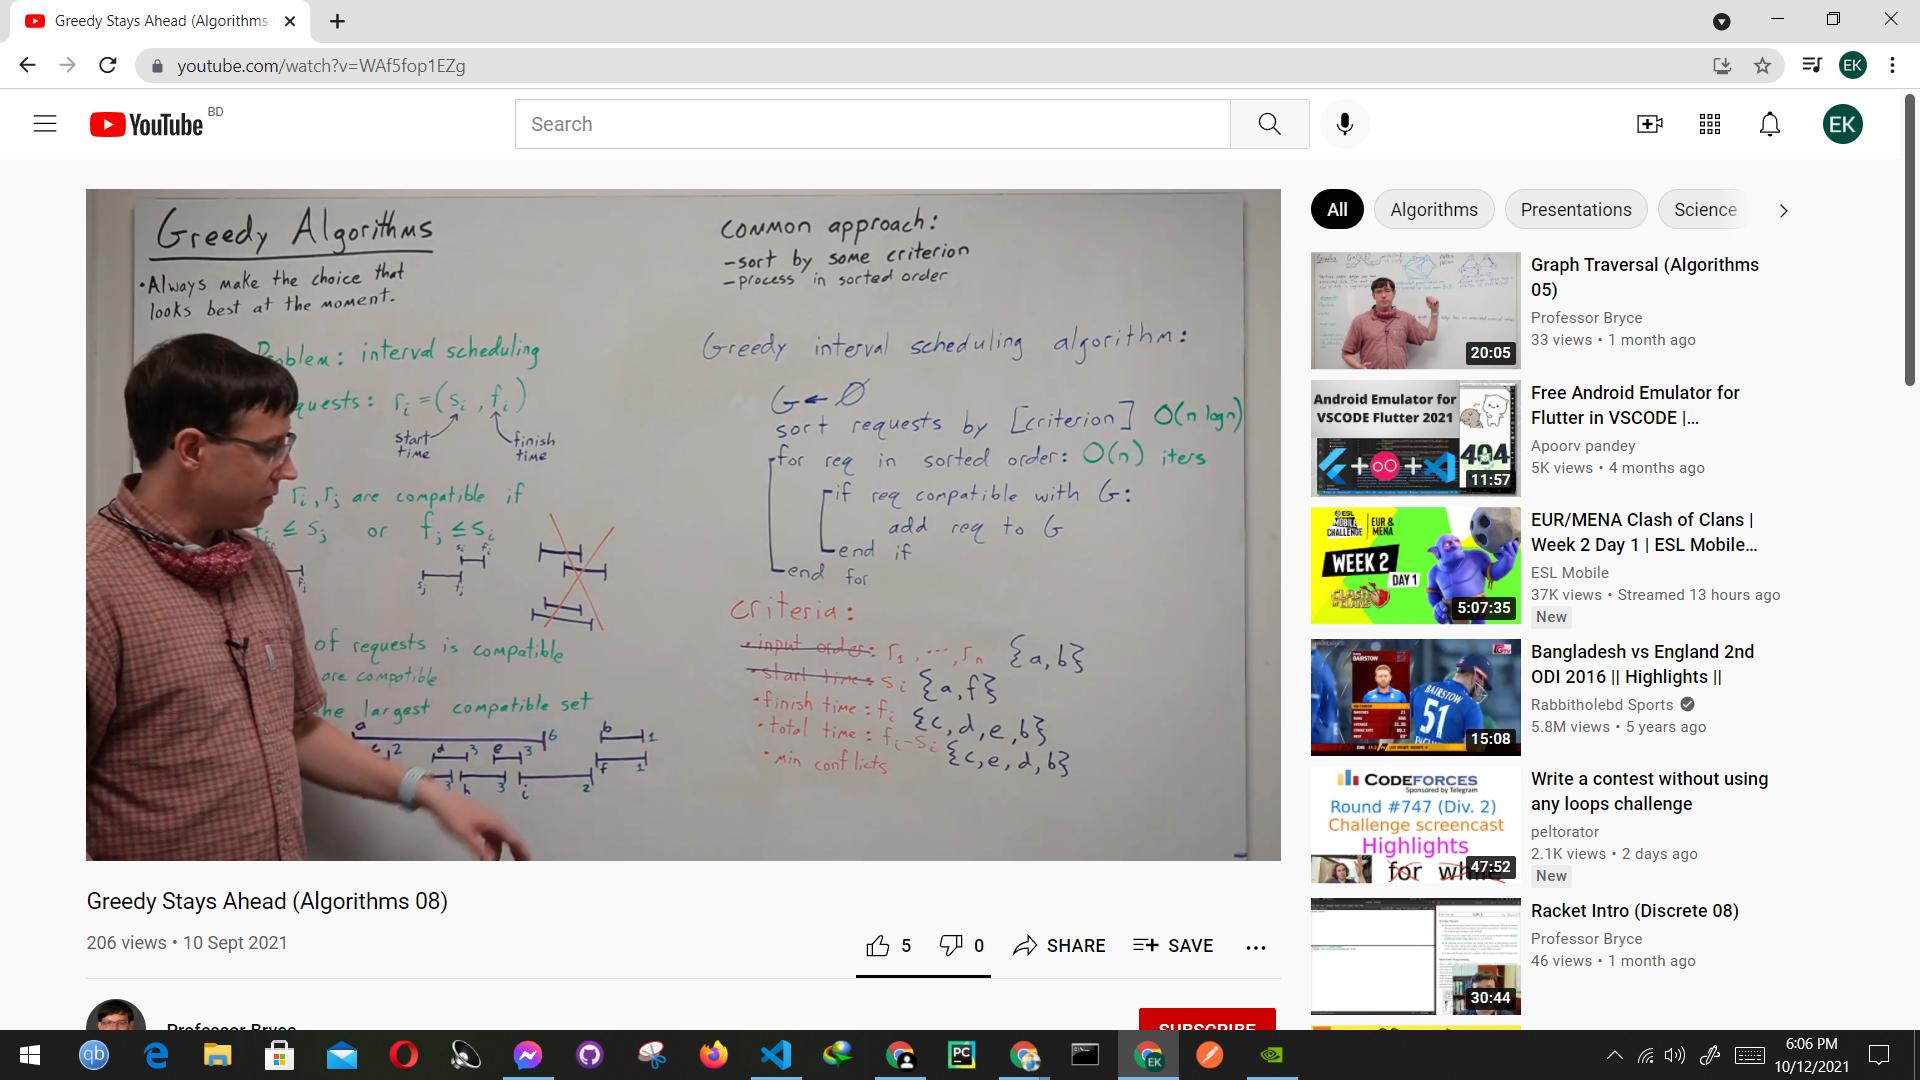 Greedy Stays Ahead (Algorithms
youtube.com/watch?v=WAf5fop1EZg
EK
YouTube BD
Search
EK
Greedy Algorithms
•Always make the choice that
looks best at the moment.
Problem: interval scheduling
quests: ri = (si, fi)
start time
finish time
ri, rj are compatible if
fi ≤ sj or fj ≤ si
si fi
fi
sj fj
of requests is compatible
are compatible
he largest compatible set
a 6 b 1
c 2 d 3 e 3
3 h 3 i 2 f 1
Common approach:
-sort by some criterion
-process in sorted order
Greedy interval scheduling algorithm:
G ← ∅
sort requests by [criterion] O(n log n)
for req in sorted order: O(n) iters
if req compatible with G:
add req to G
end if
end for
Criteria:
• input order: r1, ..., rn {a,b}
• start time: si {a,f}
• finish time: fi {c,d,e,b}
• total time: fi-si {c,e,d,b}
• min conflicts
Greedy Stays Ahead (Algorithms 08)
206 views • 10 Sept 2021
5 0 SHARE SAVE
Professor Bryce
SUBSCRIBE
All Algorithms Presentations Science
Graph Traversal (Algorithms
05)
Professor Bryce
33 views • 1 month ago
20:05
Android Emulator for
VSCODE Flutter 2021
404
11:57
Free Android Emulator for
Flutter in VSCODE |...
Apoorv pandey
5K views • 4 months ago
ESL
MOBILE
CHALLENGE
EUR &
MENA
WEEK 2
DAY 1
CLASH OF CLANS
5:07:35
EUR/MENA Clash of Clans |
Week 2 Day 1 | ESL Mobile...
ESL Mobile
37K views • Streamed 13 hours ago
New
BAIRSTOW
BAIRSTOW
51
15:08
Bangladesh vs England 2nd
ODI 2016 || Highlights ||
Rabbitholebd Sports
5.8M views • 5 years ago
CODEFORCES
Sponsored by Telegram
Round #747 (Div. 2)
Challenge screencast
Highlights
for while
47:52
Write a contest without using
any loops challenge
peltorator
2.1K views • 2 days ago
New
30:44
Racket Intro (Discrete 08)
Professor Bryce
46 views • 1 month ago
qb
PC
EK
6:06 PM
10/12/2021